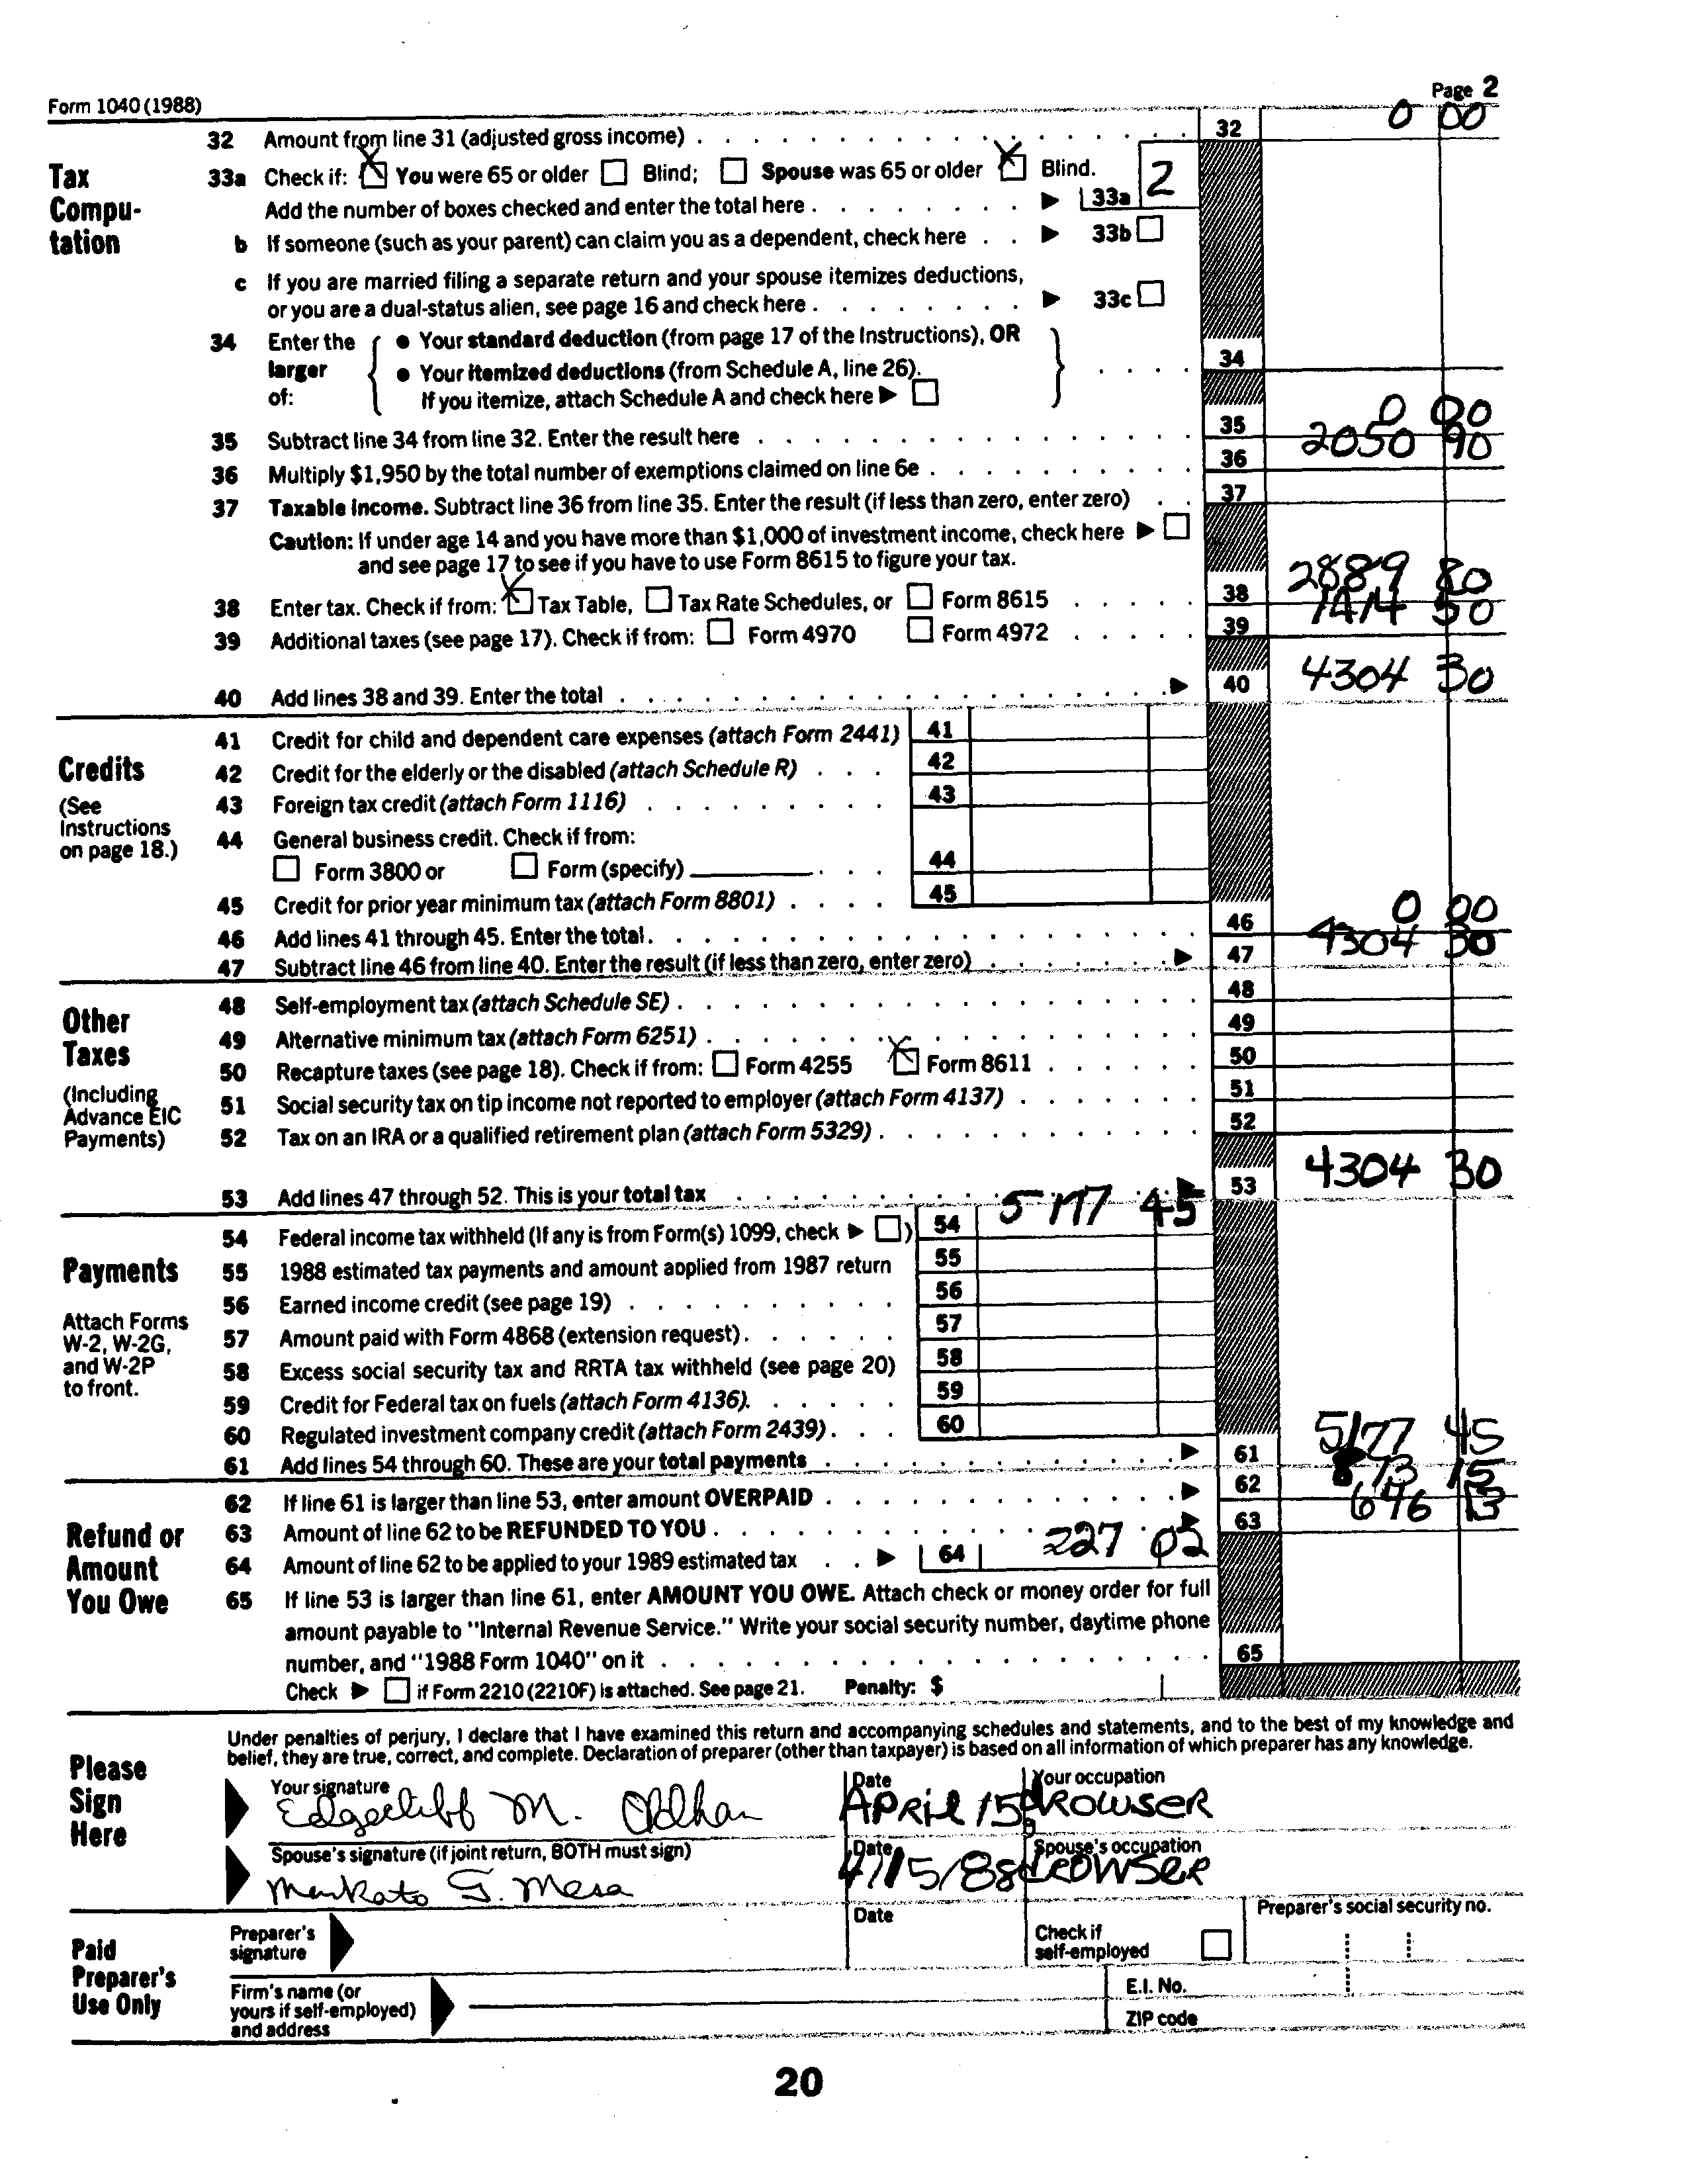 Form 1040 (1988) Page 2
32 Amount from line 31 (adjusted gross income) 32 0 00
Tax Compu-tation
33a Check if: You were 65 or older Blind; Spouse was 65 or older Blind.
Add the number of boxes checked and enter the total here 33a 2
b If someone (such as your parent) can claim you as a dependent, check here 33b
c If you are married filing a separate return and your spouse itemizes deductions,
or you are a dual-status alien, see page 16 and check here 33c
34 Enter the larger of:
• Your standard deduction (from page 17 of the Instructions), OR
• Your itemized deductions (from Schedule A, line 26).
If you itemize, attach Schedule A and check here 34
35 Subtract line 34 from line 32. Enter the result here 35 0 00
36 Multiply $1,950 by the total number of exemptions claimed on line 6e 36 2050 90
37 Taxable income. Subtract line 36 from line 35. Enter the result (if less than zero, enter zero) 37
Caution: If under age 14 and you have more than $1,000 of investment income, check here
and see page 17 to see if you have to use Form 8615 to figure your tax.
38 Enter tax. Check if from: Tax Table, Tax Rate Schedules, or Form 8615 38 2889 80
39 Additional taxes (see page 17). Check if from: Form 4970 Form 4972 39 1414 50
40 Add lines 38 and 39. Enter the total 40 4304 30
Credits
(See Instructions on page 18.)
41 Credit for child and dependent care expenses (attach Form 2441) 41
42 Credit for the elderly or the disabled (attach Schedule R) 42
43 Foreign tax credit (attach Form 1116) 43
44 General business credit. Check if from:
Form 3800 or Form (specify) 44
45 Credit for prior year minimum tax (attach Form 8801) 45
46 Add lines 41 through 45. Enter the total. 46 0 00
47 Subtract line 46 from line 40. Enter the result (if less than zero, enter zero) 47 4304 30
Other Taxes
(Including Advance EIC Payments)
48 Self-employment tax (attach Schedule SE) 48
49 Alternative minimum tax (attach Form 6251) 49
50 Recapture taxes (see page 18). Check if from: Form 4255 Form 8611 50
51 Social security tax on tip income not reported to employer (attach Form 4137) 51
52 Tax on an IRA or a qualified retirement plan (attach Form 5329) 52
53 Add lines 47 through 52. This is your total tax 53 4304 30
Payments
Attach Forms W-2, W-2G, and W-2P to front.
54 Federal income tax withheld (If any is from Form(s) 1099, check ) 54 5177 45
55 1988 estimated tax payments and amount applied from 1987 return 55
56 Earned income credit (see page 19) 56
57 Amount paid with Form 4868 (extension request) 57
58 Excess social security tax and RRTA tax withheld (see page 20) 58
59 Credit for Federal tax on fuels (attach Form 4136). 59
60 Regulated investment company credit (attach Form 2439) 60
61 Add lines 54 through 60. These are your total payments 61 5177 45
Refund or Amount You Owe
62 If line 61 is larger than line 53, enter amount OVERPAID 62 873 15
63 Amount of line 62 to be REFUNDED TO YOU 63 646 13
64 Amount of line 62 to be applied to your 1989 estimated tax 64 227 02
65 If line 53 is larger than line 61, enter AMOUNT YOU OWE. Attach check or money order for full
amount payable to "Internal Revenue Service." Write your social security number, daytime phone
number, and "1988 Form 1040" on it 65
Check if Form 2210 (2210F) is attached. See page 21. Penalty: $
Please Sign Here
Under penalties of perjury, I declare that I have examined this return and accompanying schedules and statements, and to the best of my knowledge and
belief, they are true, correct, and complete. Declaration of preparer (other than taxpayer) is based on all information of which preparer has any knowledge.
Your signature Date Your occupation
Edgecliff M. Oldhan APRil 15
Spouse's signature (if joint return, BOTH must sign) Date Spouse's occupation
Mankato G. Mesa 4/15/88
Paid Preparer's Use Only
Preparer's signature Date Check if self-employed Preparer's social security no.
Firm's name (or yours if self-employed) and address E.I. No.
ZIP code
20